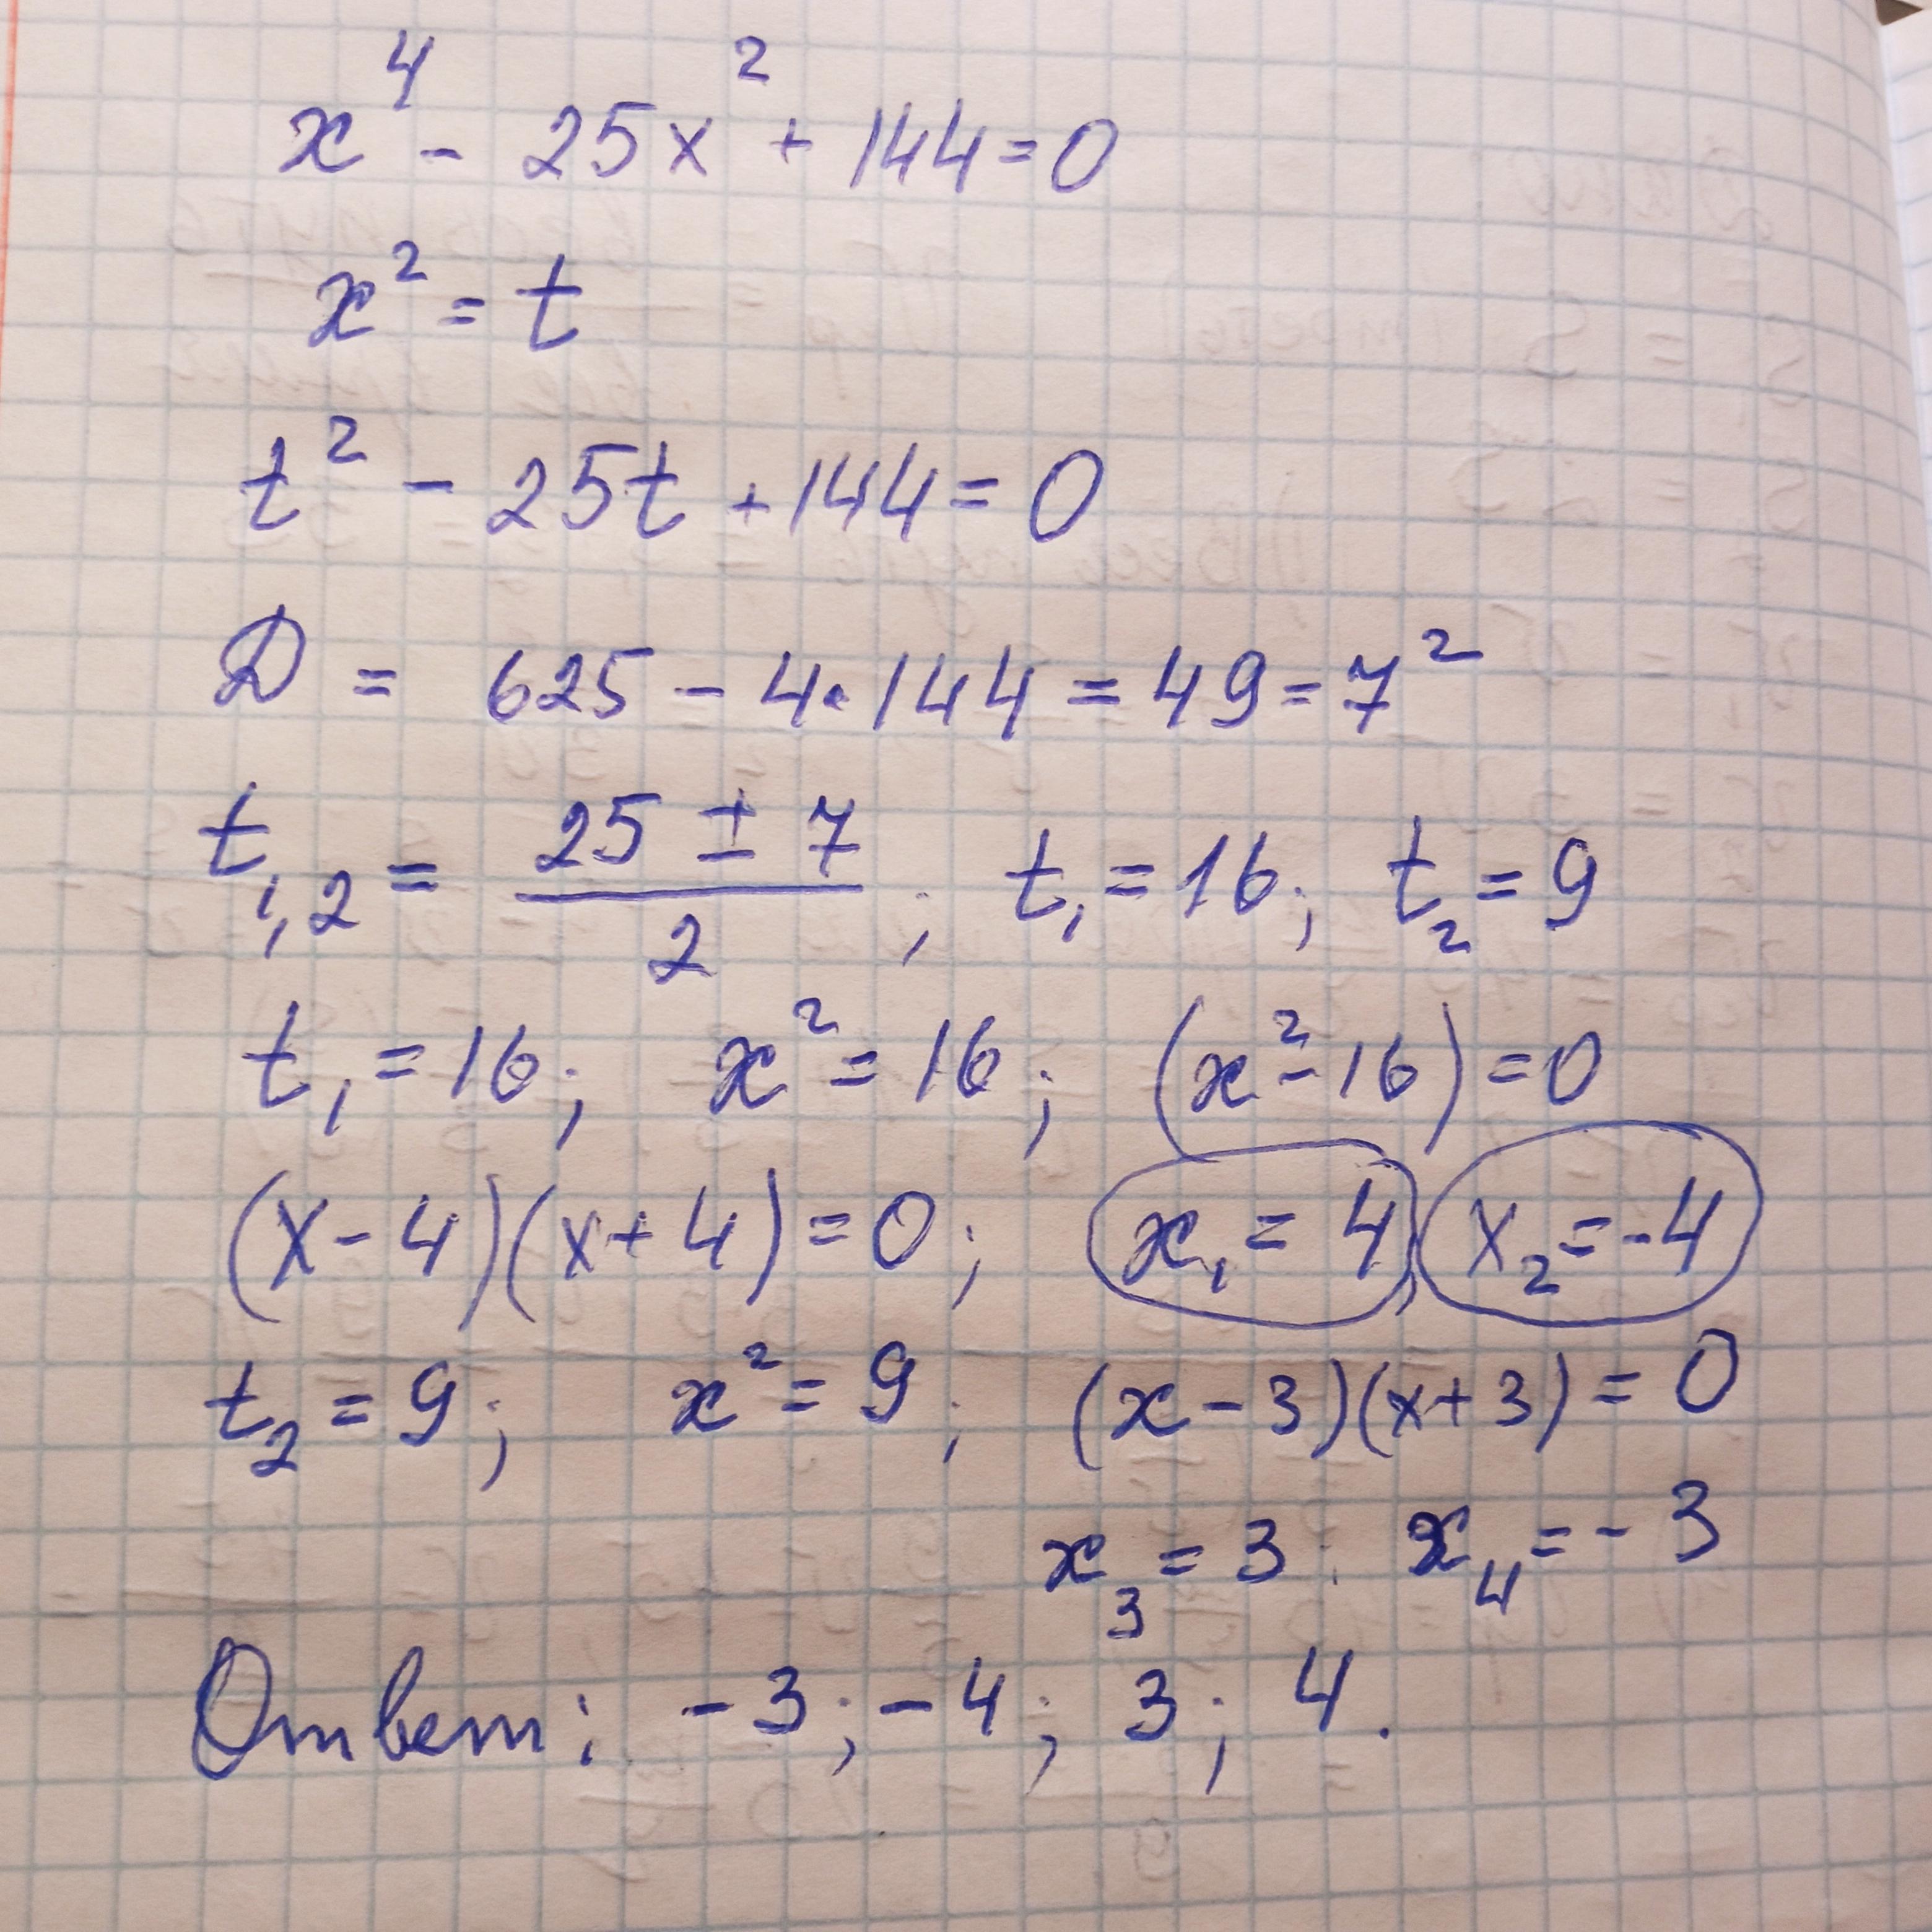 x⁴ - 25x² + 144 = 0
x² = t
t² - 25t + 144 = 0
D = 625 - 4·144 = 49 = 7²
t₁,₂ = (25 ± 7)/2 ; t₁ = 16; t₂ = 9
t₁ = 16; x² = 16; (x² - 16) = 0
(x - 4)(x + 4) = 0; x₁ = 4; x₂ = -4
t₂ = 9; x² = 9; (x - 3)(x + 3) = 0
x₃ = 3; x₄ = -3
Ответ: -3; -4; 3; 4.